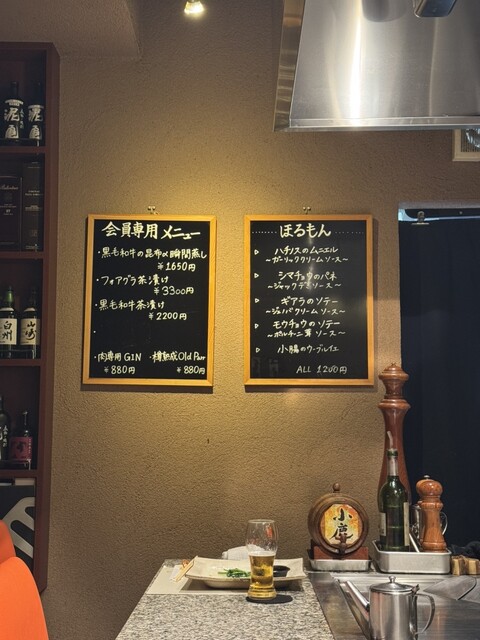 会員専用メニュー
・黒毛和牛の昆布α瞬間蒸し
￥1650円
・フォアグラ茶漬け
￥3300円
・黒毛和牛茶漬け
￥2200円
・肉専用GIN ・樽熟成Old Parr
￥880円 ￥880円
ほるもん
ハチノスのムニエル
～ガーリッククリームソース～
シマチョウのパネ
～ジャックダニソース～
ギアラのソテー
～ジェノバクリームソース～
モウチョウのソテー
～ポルチーニ茸ソース～
小腸のウ・ブルイエ
ALL 1200円
白州
山崎